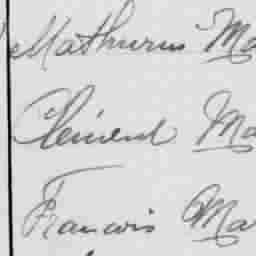 Mathurin Ma
Clément Ma
Francois Ma